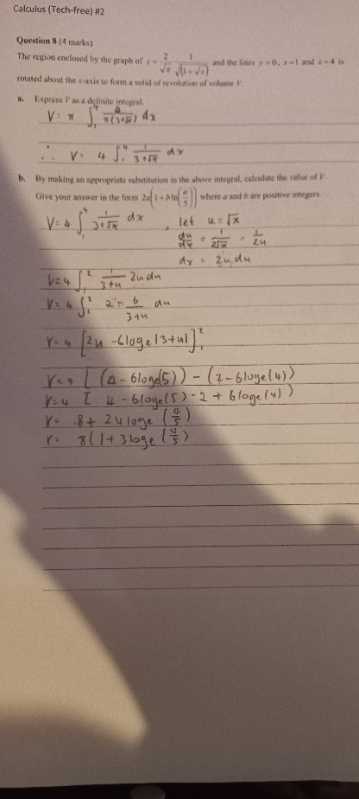 Calculus (Tech-free) #2
Question 8 (4 marks)
The region enclosed by the graph of y = 2/√π · 1/√(3+√x) and the lines y = 0, x = 1 and x = 4 is
rotated about the x-axis to form a solid of revolution of volume V.
a. Express V as a definite integral.
V = π ∫₁⁴ 4/(π(3+√x)) dx
∴ V = 4 ∫₁⁴ 1/(3+√x) dx
b. By making an appropriate substitution in the above integral, calculate the value of V.
Give your answer in the form 2a(1+b ln(a/5)) where a and b are positive integers.
V = 4 ∫₁⁴ 1/(3+√x) dx , let u = √x
du/dx = 1/(2√x) = 1/(2u)
dx = 2u du
V = 4 ∫₁² 1/(3+u) 2u du
V = 4 ∫₁² 2 - 6/(3+u) du
V = 4 [2u - 6loge|3+u|]₁²
V = 4 [(4 - 6loge(5)) - (2 - 6loge(4))
V = 4 [ 4 - 6loge(5) - 2 + 6loge(4))
V = 8 + 24loge(4/5)
V = 8(1 + 3loge(4/5)